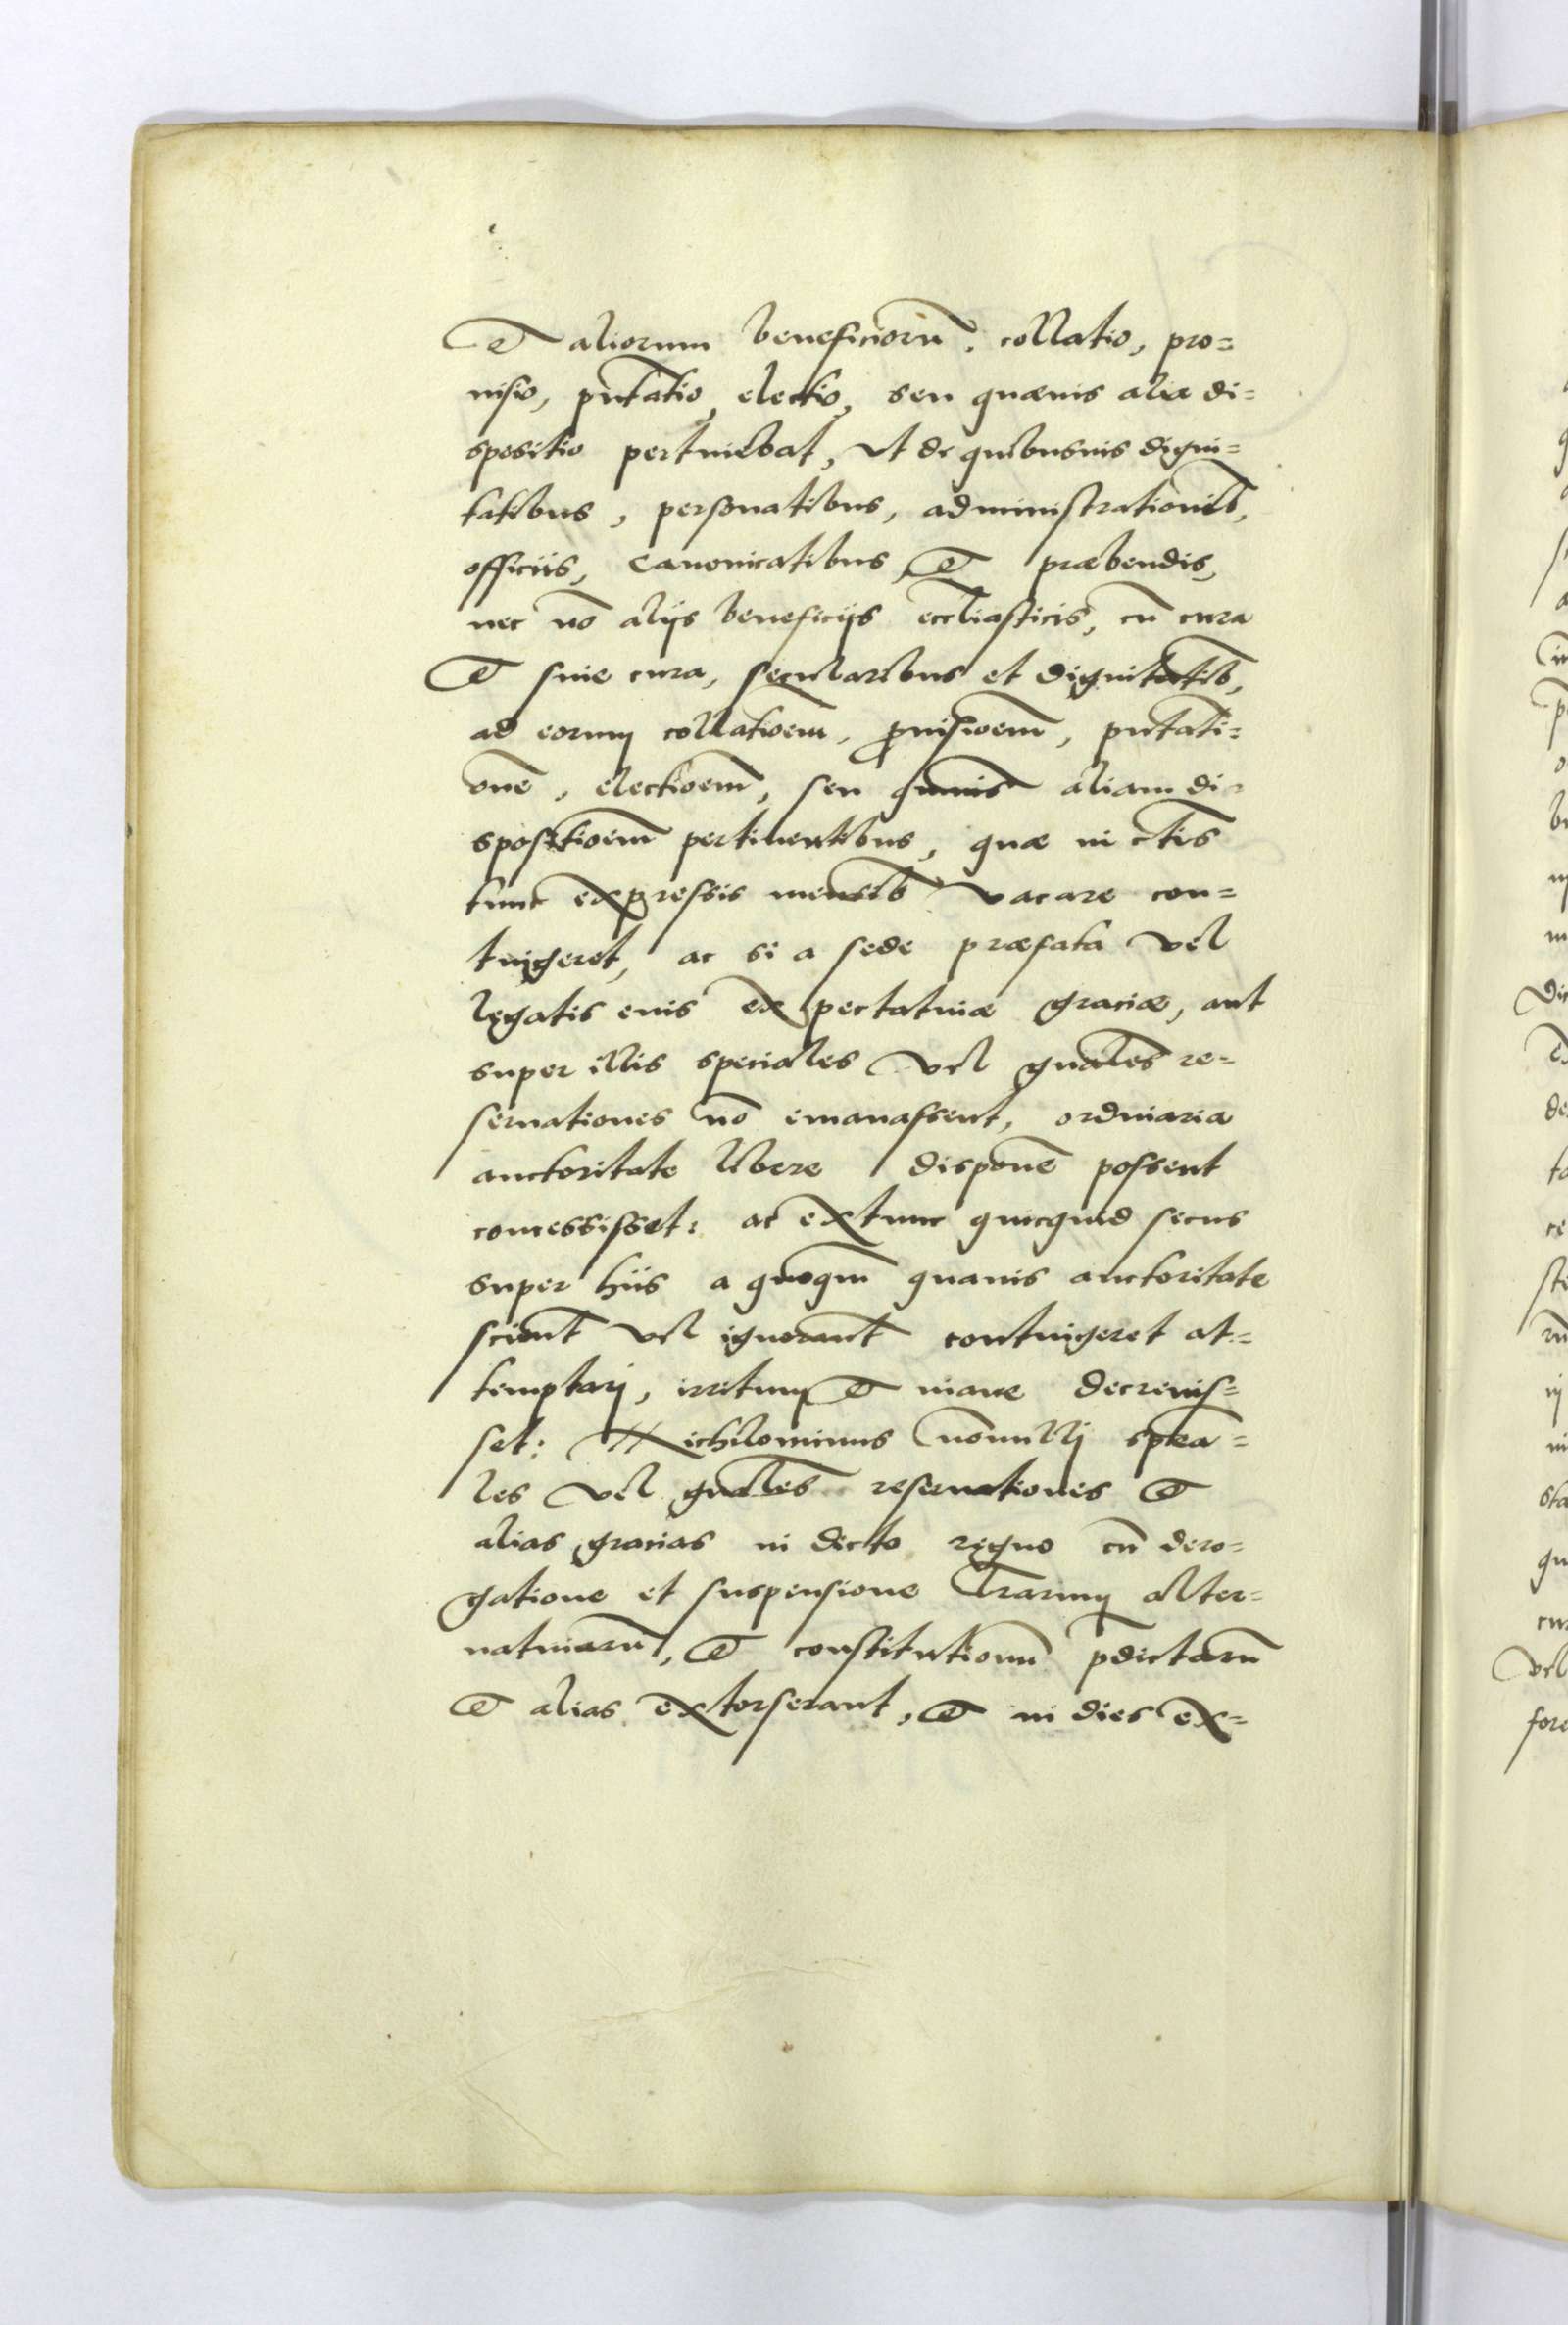 et aliorum beneficiorū, collatio, pro=
uisio, pn̄tatio, electio, seu quæuis alia di=
spositio pertinebat, vt de quibusuis digni=
tatibus, personatibus, administrationib,
officiis, canonicatibus, et præbendis,
nec nō alijs beneficijs eccl̄iasticis, cū cura
et sine cura, secularibus et dignitatib,
ad eorum collatioem̄, prouisioem̄, pn̄tati=
onē, electioem̄, seu quāuis aliam di=
spositioem̄ pertinentibus, quæ in c̄tis
tunc expressis mensib vacare con=
tingeret, ac si a sede præfata vel
legatis euis expectatiuæ graciæ, aut
super illis speciales vel gn̄ales re=
seruationes nō emanassent, ordinaria
auctoritate libere disponē possent
concessisset: ac extunc quicquid secus
super hiis a quoqm̄ quauis auctoritate
scient̄ vel ignorant̄ contingeret at=
temptarj, irritum et inane decreuis=
set: Nichilominus nōnullj sp̄cia=
les vel gn̄ales reseruationes et
alias gracias in dicto regno cū dero=
gatione et suspensione l̄rarum alter=
natiuarū, et constitutionū p̄dictarū
et alias extorserant, et in dies ex=